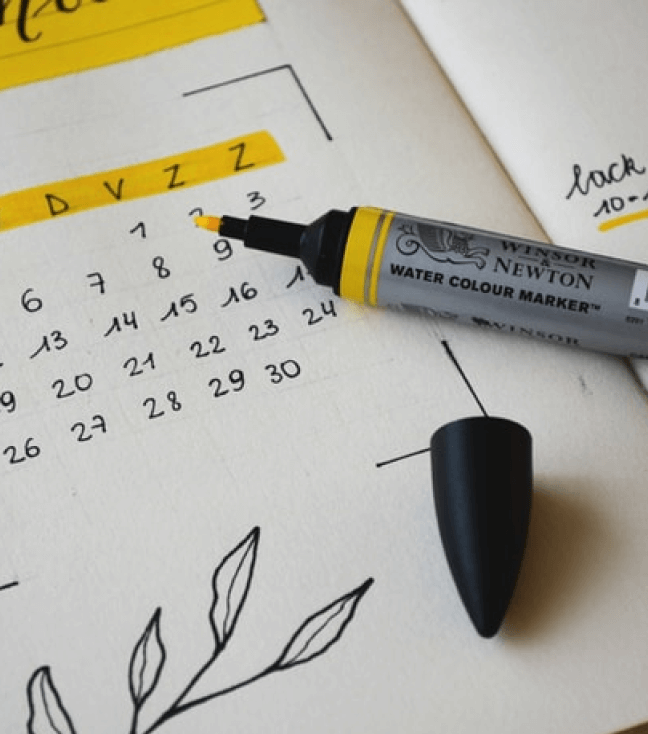 D V Z Z
1 2 3
6 7 8 9
13 14 15 16
20 21 22 23 24
26 27 28 29 30
WINSOR
&
NEWTON
WATER COLOUR MARKER™
WINSOR